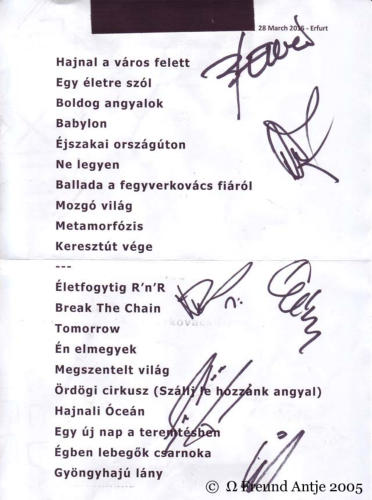 28 March 2015 - Erfurt
Hajnal a város felett
Egy életre szól
Boldog angyalok
Babylon
Éjszakai országúton
Ne legyen
Ballada a fegyverkovács fiáról
Mozgó világ
Metamorfózis
Keresztút vége
---
Életfogytig R'n'R
Break The Chain
Tomorrow
Én elmegyek
Megszentelt világ
Ördögi cirkusz (Szállj le hozzánk angyal)
Hajnali Óceán
Egy új nap a teremtésben
Égben lebegők csarnoka
Gyöngyhajú lány
© Ω Freund Antje 2005